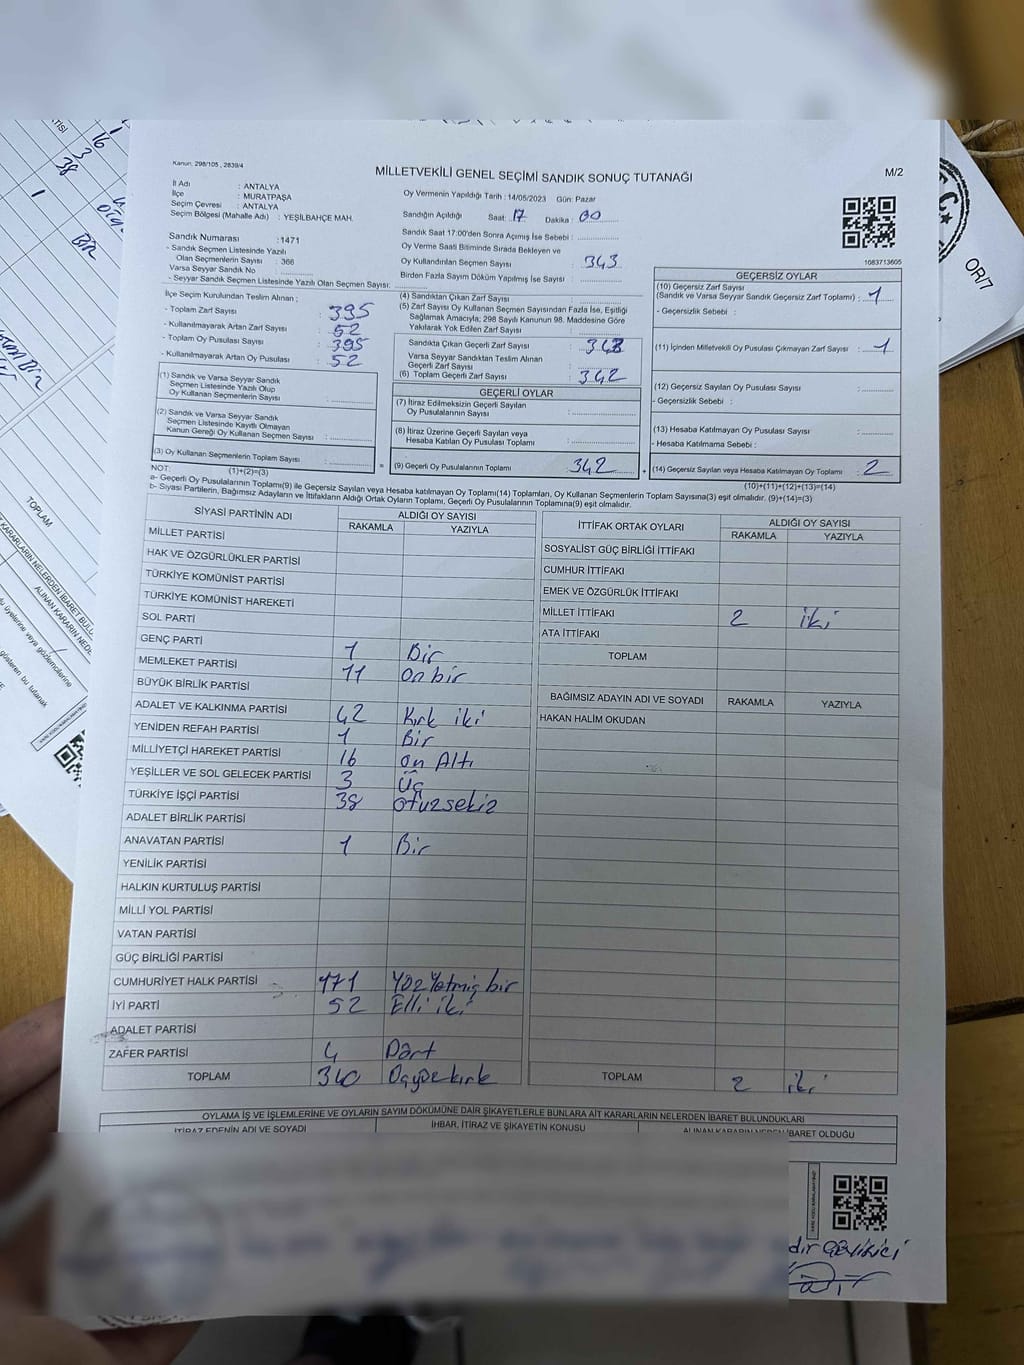 Kanun: 298/105 , 2839/4
MİLLETVEKİLİ GENEL SEÇİMİ SANDIK SONUÇ TUTANAĞI
M/2
İl Adı : ANTALYA
İlçe : MURATPAŞA
Seçim Çevresi : ANTALYA
Seçim Bölgesi (Mahalle Adı) : YEŞİLBAHÇE MAH.
Sandık Numarası :1471
- Sandık Seçmen Listesinde Yazılı
Olan Seçmenlerin Sayısı : 366
Varsa Seyyar Sandık No :
- Seyyar Sandık Seçmen Listesinde Yazılı Olan Seçmen Sayısı:
İlçe Seçim Kurulundan Teslim Alınan ;
- Toplam Zarf Sayısı : 395
- Kullanılmayarak Artan Zarf Sayısı : 52
- Toplam Oy Pusulası Sayısı : 395
- Kullanılmayarak Artan Oy Pusulası : 52
(1) Sandık ve Varsa Seyyar Sandık
Seçmen Listesinde Yazılı Olup
Oy Kullanan Seçmenlerin Sayısı :
(2) Sandık ve Varsa Seyyar Sandık
Seçmen Listesinde Kayıtlı Olmayan
Kanun Gereği Oy Kullanan Seçmen Sayısı :
(3) Oy Kullanan Seçmenlerin Toplam Sayısı :
(1)+(2)=(3)
Oy Vermenin Yapıldığı Tarih : 14/05/2023 Gün: Pazar
Sandığın Açıldığı Saat: 17 Dakika : 00
Sandık Saat 17:00'den Sonra Açılmış İse Sebebi :
Oy Verme Saati Bitiminde Sırada Bekleyen ve
Oy Kullandırılan Seçmen Sayısı : 343
Birden Fazla Sayım Döküm Yapılmış İse Sayısı :
(4) Sandıktan Çıkan Zarf Sayısı :
(5) Zarf Sayısı Oy Kullanan Seçmen Sayısından Fazla İse, Eşitliği
Sağlamak Amacıyla; 298 Sayılı Kanunun 98. Maddesine Göre
Yakılarak Yok Edilen Zarf Sayısı :
Sandıkta Çıkan Geçerli Zarf Sayısı :
Varsa Seyyar Sandıktan Teslim Alınan
Geçerli Zarf Sayısı :
(6) Toplam Geçerli Zarf Sayısı : 342
GEÇERLİ OYLAR
(7) İtiraz Edilmeksizin Geçerli Sayılan
Oy Pusulalarının Sayısı :
(8) İtiraz Üzerine Geçerli Sayılan veya
Hesaba Katılan Oy Pusulası Toplamı :
= (9) Geçerli Oy Pusulalarının Toplamı : 342 +
1083713605
GEÇERSİZ OYLAR
(10) Geçersiz Zarf Sayısı
(Sandık ve Varsa Seyyar Sandık Geçersiz Zarf Toplamı) : 1
- Geçersizlik Sebebi :
(11) İçinden Milletvekili Oy Pusulası Çıkmayan Zarf Sayısı : 1
(12) Geçersiz Sayılan Oy Pusulası Sayısı :
- Geçersizlik Sebebi :
(13) Hesaba Katılmayan Oy Pusulası Sayısı :
- Hesaba Katılmama Sebebi :
(14) Geçersiz Sayılan veya Hesaba Katılmayan Oy Toplamı : 2
(10)+(11)+(12)+(13)=(14)
NOT:
a- Geçerli Oy Pusulalarının Toplamı(9) ile Geçersiz Sayılan veya Hesaba katılmayan Oy Toplamı(14) Toplamları, Oy Kullanan Seçmenlerin Toplam Sayısına(3) eşit olmalıdır. (9)+(14)=(3)
b- Siyasi Partilerin, Bağımsız Adayların ve İttifakların Aldığı Ortak Oyların Toplamı, Geçerli Oy Pusulalarının Toplamına(9) eşit olmalıdır.
SİYASİ PARTİNİN ADI ALDIĞI OY SAYISI
RAKAMLA YAZIYLA
MİLLET PARTİSİ
HAK VE ÖZGÜRLÜKLER PARTİSİ
TÜRKİYE KOMÜNİST PARTİSİ
TÜRKİYE KOMÜNİST HAREKETİ
SOL PARTİ
GENÇ PARTİ 1 Bir
MEMLEKET PARTİSİ 11 on bir
BÜYÜK BİRLİK PARTİSİ
ADALET VE KALKINMA PARTİSİ 42 Kırk iki
YENİDEN REFAH PARTİSİ 1 Bir
MİLLİYETÇİ HAREKET PARTİSİ 16 on Altı
YEŞİLLER VE SOL GELECEK PARTİSİ 3 Üç
TÜRKİYE İŞÇİ PARTİSİ 38 otuzsekiz
ADALET BİRLİK PARTİSİ
ANAVATAN PARTİSİ 1 Bir
YENİLİK PARTİSİ
HALKIN KURTULUŞ PARTİSİ
MİLLİ YOL PARTİSİ
VATAN PARTİSİ
GÜÇ BİRLİĞİ PARTİSİ
CUMHURİYET HALK PARTİSİ 171 Yüz Yetmiş bir
İYİ PARTİ 52 Elli iki
ADALET PARTİSİ
ZAFER PARTİSİ 4 Dört
TOPLAM 340 Üçyüzkırk
İTTİFAK ORTAK OYLARI ALDIĞI OY SAYISI
RAKAMLA YAZIYLA
SOSYALİST GÜÇ BİRLİĞİ İTTİFAKI
CUMHUR İTTİFAKI
EMEK VE ÖZGÜRLÜK İTTİFAKI
MİLLET İTTİFAKI 2 iki
ATA İTTİFAKI
TOPLAM
BAĞIMSIZ ADAYIN ADI VE SOYADI RAKAMLA YAZIYLA
HAKAN HALİM OKUDAN
TOPLAM 2 iki
OYLAMA İŞ VE İŞLEMLERİNE VE OYLARIN SAYIM DÖKÜMÜNE DAİR ŞİKAYETLERLE BUNLARA AİT KARARLARIN NELERDEN İBARET BULUNDUKLARI
İTİRAZ EDENİN ADI VE SOYADI İHBAR, İTİRAZ VE ŞİKAYETİN KONUSU ALINAN KARARIN NEDEN İBARET OLDUĞU
OR/7
16
3
38
BİR
TOPLAM